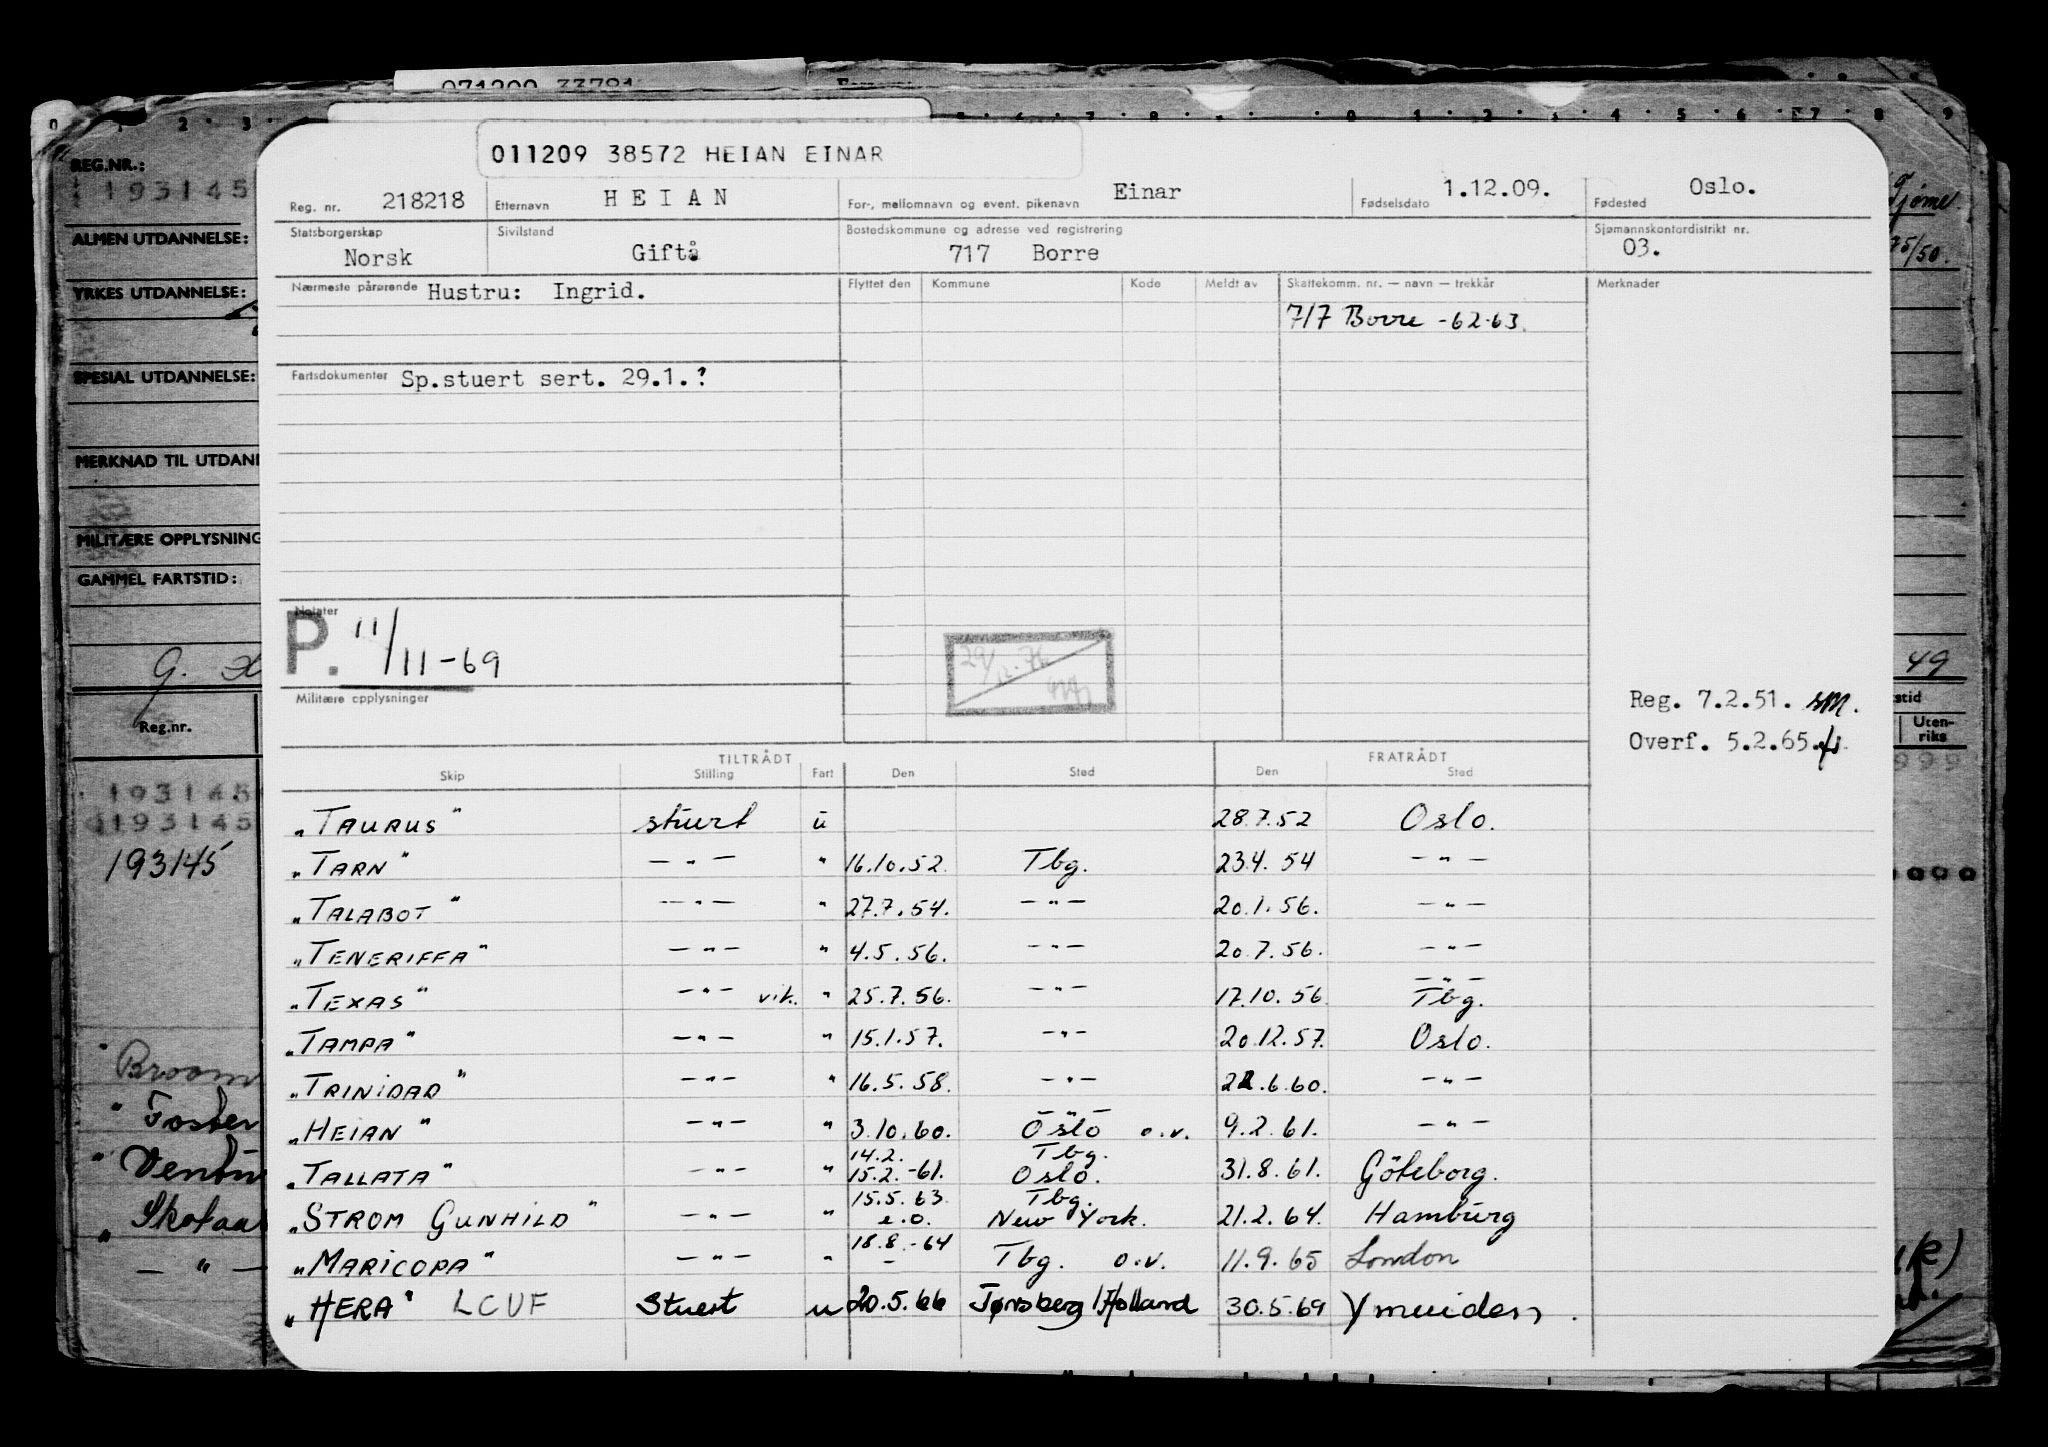 011209 38572 HEIAN EINAR
Reg. nr. 218218 Etternavn HEIAN For-, mellomnavn og event. pikenavn Einar Fødselsdato 1.12.09. Fødested Oslo.
Statsborgerskap Norsk Sivilstand Giftå Bostedskommune og adresse ved registrering 717 Borre Sjømannskontordistrikt nr. 03.
Nærmeste pårørende Hustru: Ingrid. Flyttet den Kommune Kode Meldt av Skattekomm. nr. — navn — trekkår Merknader
717 Borre -62-63.
Fartsdokumenter Sp.stuert sert. 29.1.?
Notater
P. 11/11-69
Militære opplysninger
Reg. 7.2.51. sm.
Overf. 5.2.65.
TILTRÅDT FRATRÅDT
Skip Stilling Fart Den Sted Den Sted
"TAURUS" stuert u 28.7.52 Oslo.
"TARN" —"— " 16.10.52. Tbg. 23.4.54 —"—
"TALABOT" —"— " 27.7.54. —"— 20.1.56. —"—
"TENERIFFA" —"— " 4.5.56. —"— 20.7.56. —"—
"TEXAS" —"— vik. " 25.7.56. —"— 17.10.56 —"— Tbg.
"TAMPA" —"— " 15.1.57. —"— 20.12.57. Oslo.
"TRINIDAD" —"— " 16.5.58. —"— 22.6.60. —"—
"HEIAN" —"— " 3.10.60. —"— Oslo o.v. 9.2.61. —"—
"TALLATA" —"— " 14.2. 15.2.-61. Tbg. Oslo. 31.8.61. Göteborg.
"STROM GUNHILD" —"— " 15.5.63 e.o. Tbg. New York. 21.2.64. Hamburg
"MARICOPA" —"— " 18.8.-64 Tbg. o.v. 11.9.65 London
"HERA" LCUF Stuert u 20.5.66 Tønsberg/Holland 30.5.69 Ymuiden.
REG.NR.:
193145
ALMEN UTDANNELSE:
YRKES UTDANNELSE:
SPESIAL UTDANNELSE:
MERKNAD TIL UTDAN
MILITÆRE OPPLYSNING
GAMMEL FARTSTID:
Reg.nr.
193145
193145
193145
Broom
" Foster
"
"
— " —
Tjøme
75/50.
49
stid
Uten-
riks
999